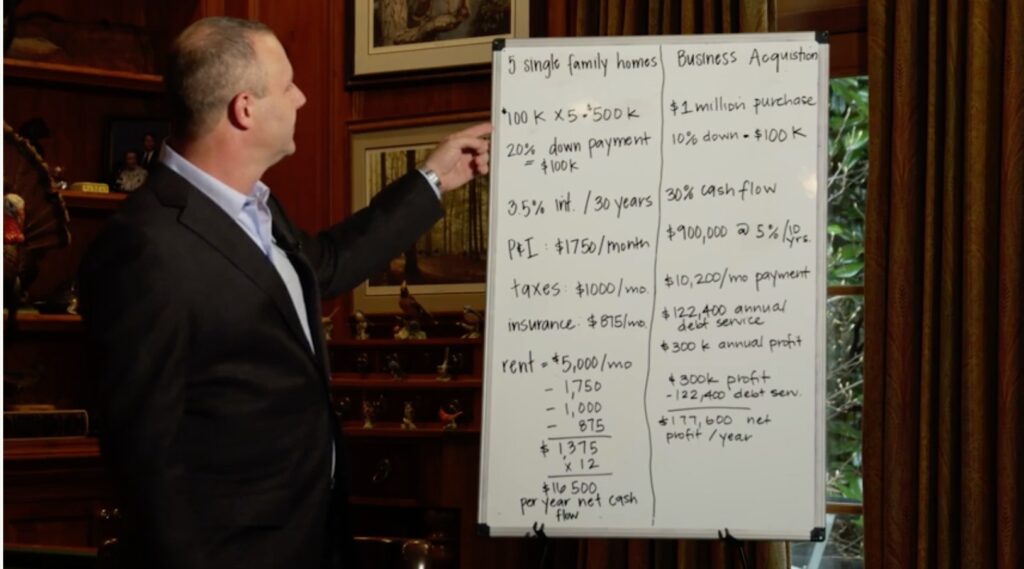 5 single family homes
$100 K x 5 = $500 K
20% down payment
= $100K
3.5% int. / 30 years
P&I : $1750/month
taxes: $1000/mo.
insurance: $875/mo.
rent = $5,000/mo
- 1,750
- 1,000
- 875
$ 1,375
x 12
$16 500
per year net cash
flow
Business Acquistion
$1 million purchase
10% down = $100 K
30% cash flow
$900,000 @ 5%/10
yrs.
$10,200/mo payment
$122,400 annual
debt service
$300 k annual profit
$300k profit
-122,400 debt serv.
$177,600 net
profit / year